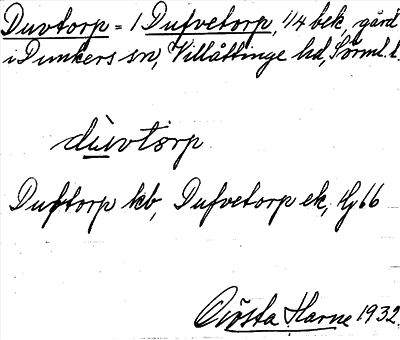 Duvtorp = 1 Dufvetorp, 1/4 bek, gård
i Dunkers sn, Villåttinge hd, Sörml. l.
dùvtorp
Duftorp kb, Dufvetorp ek, Hg 66
Gösta Harne 1932.